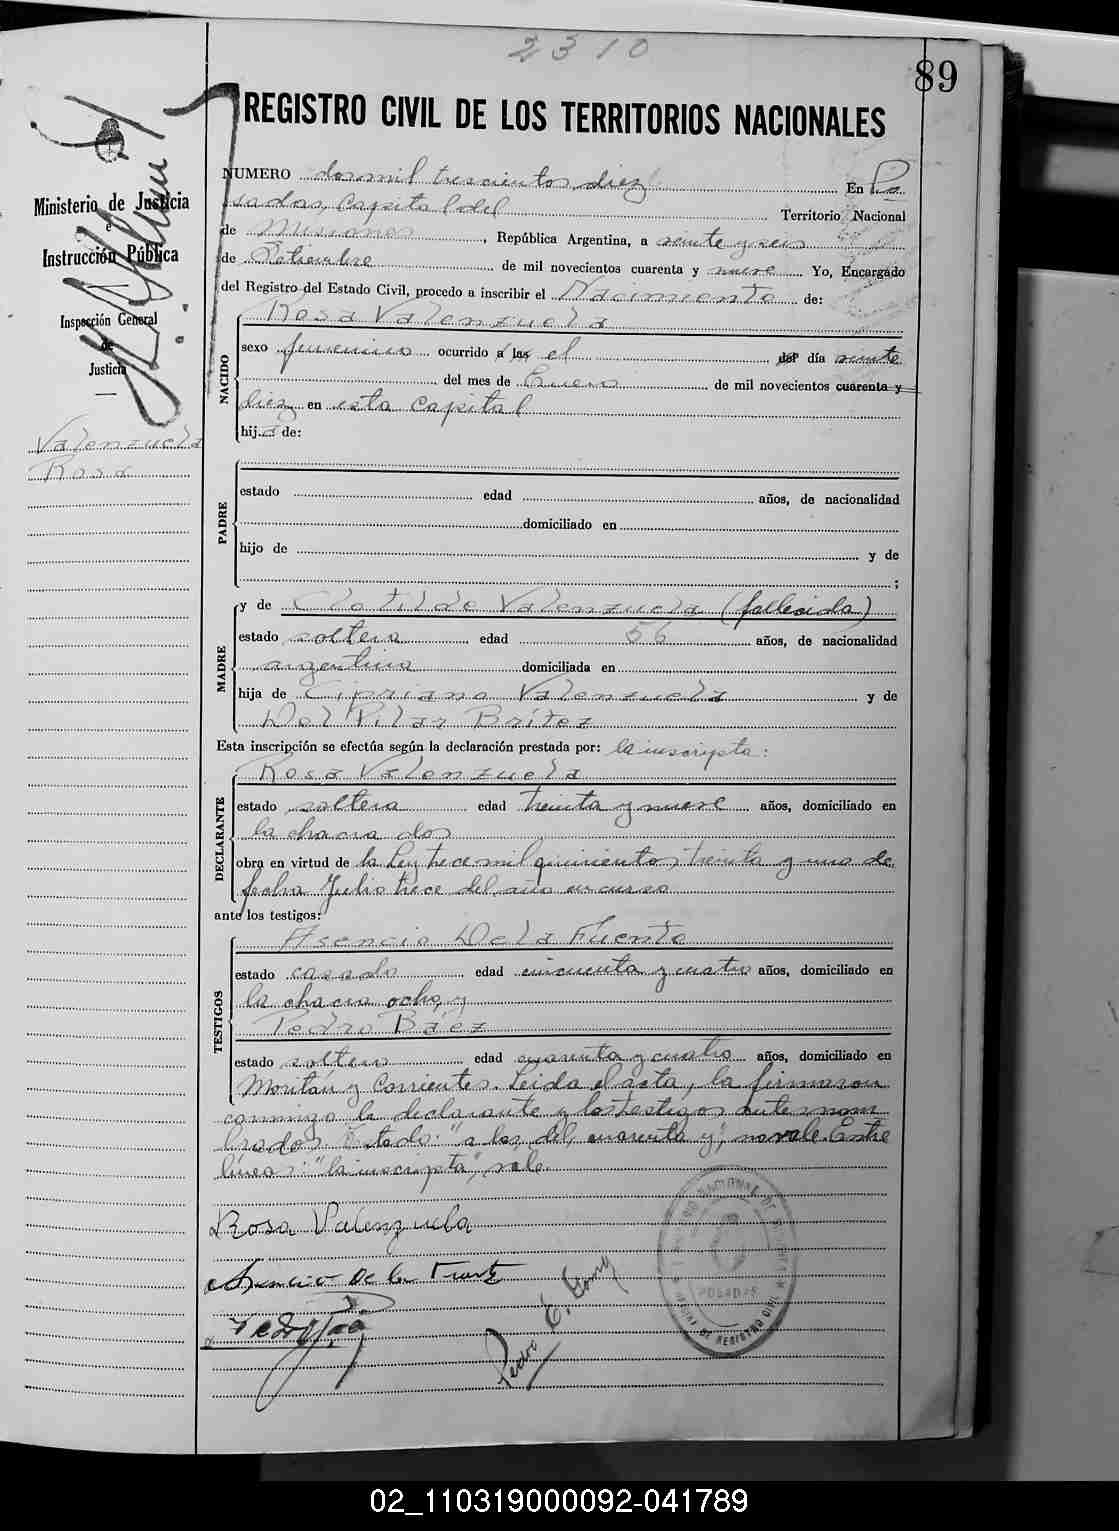 2310
89
REGISTRO CIVIL DE LOS TERRITORIOS NACIONALES
Ministerio de Justicia
e
Instrucción Pública
Inspección General
de
Justicia
Valenzuela
Rosa
NUMERO dos mil trescientos diez En Po
sadas, Capital del Territorio Nacional
de Misiones, República Argentina, a veinte y seis
de Setiembre de mil novecientos cuarenta y nueve Yo, Encargado
del Registro del Estado Civil, procedo a inscribir el Nacimiento de:
NACIDO
Rosa Valenzuela
sexo femenino ocurrido a las el del día veinte
del mes de Enero de mil novecientos cuarenta y
diez en esta Capital
hija de:
PADRE
estado edad años, de nacionalidad
domiciliado en
hijo de y de
;
MADRE
y de Clotilde Valenzuela (fallecida)
estado soltera edad 56 años, de nacionalidad
argentina domiciliada en
hija de Cipriano Valenzuela y de
Del Pilar Britez
Esta inscripción se efectúa según la declaración prestada por: la inscripta:
DECLARANTE
Rosa Valenzuela
estado soltera edad treinta y nueve años, domiciliado en
la chacra dos
obra en virtud de la Ley trece mil quinientos treinta y uno de
fecha Julio trece del año en curso
ante los testigos:
TESTIGOS
Asencio De la Fuente
estado casado edad cincuenta y cuatro años, domiciliado en
la chacra ocho, y
Pedro Báez
estado soltero edad cuarenta y cuatro años, domiciliado en
y Corrientes. Leida el acta, la firmaron
conmigo la declarante y los testigos antes nom
brados. Testado: "a las, del, cuarenta y", no vale. Entre
lineas: "la inscripta", vale.
Rosa Valenzuela
Asencio De la Fuente
Pedro Báez
Pedro E.
POSADAS
REGISTRO CIVIL
02_110319000092-041789